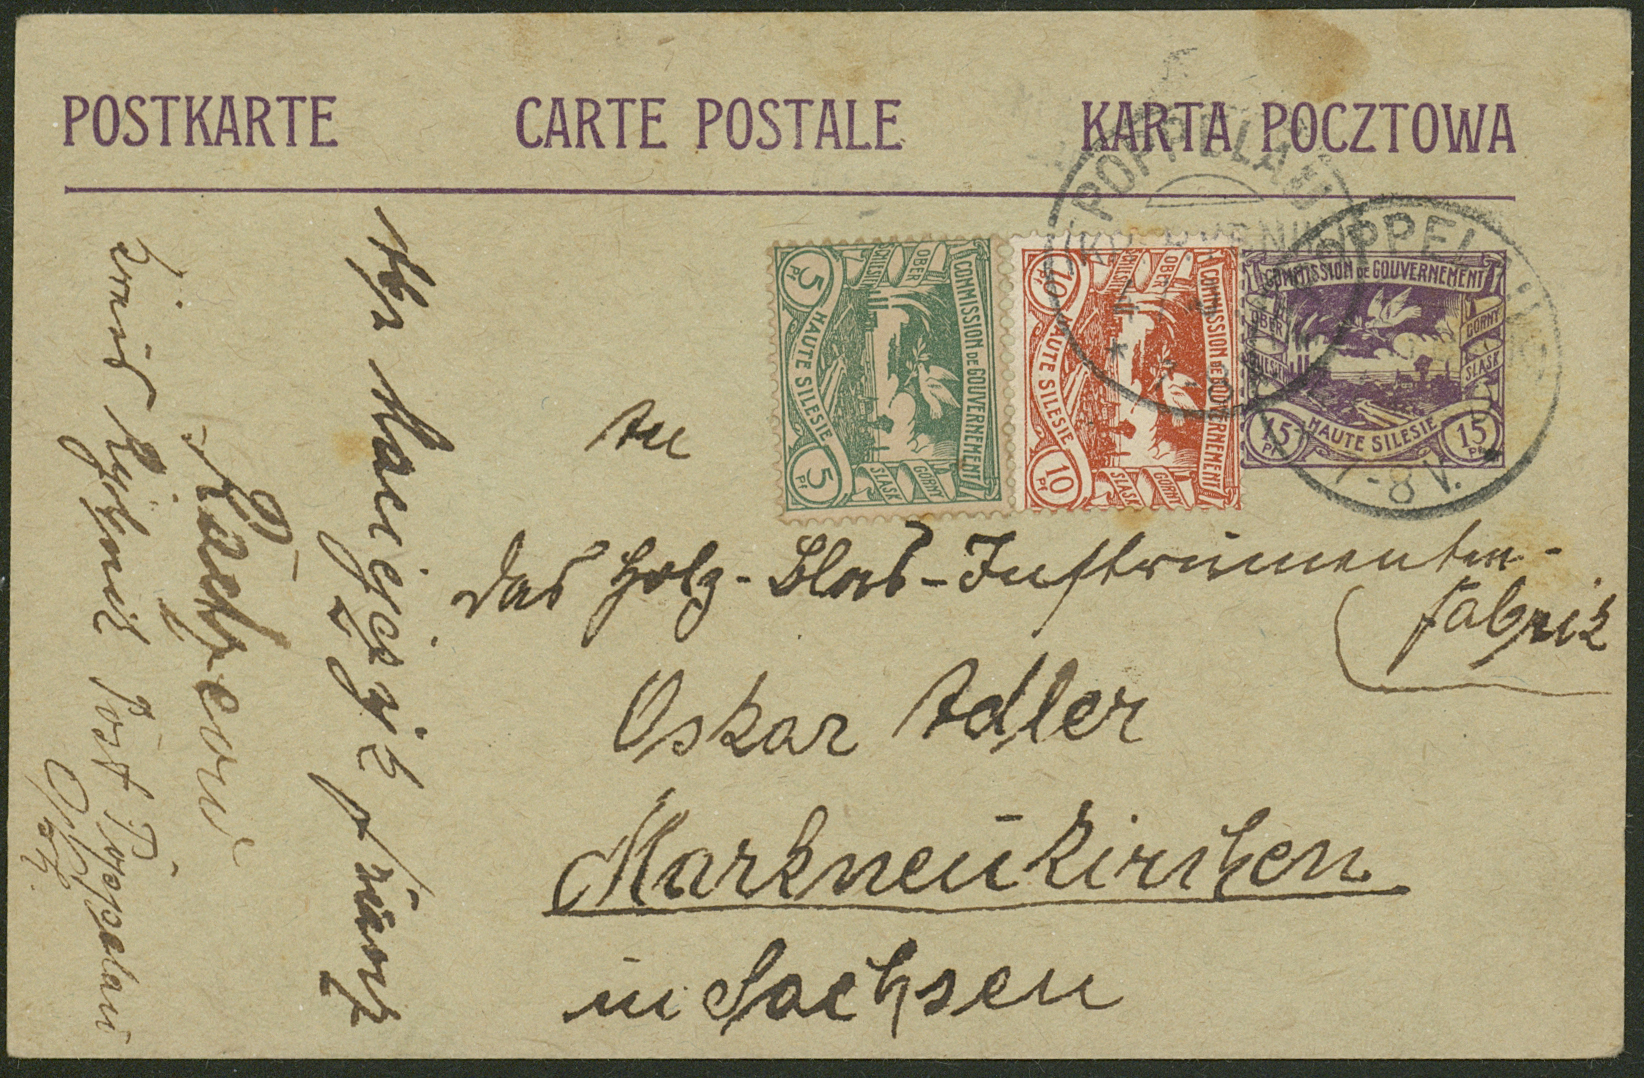 POSTKARTE CARTE POSTALE KARTA POCZTOWA
POPPELAU
OPPEL
7-8 V.
5 Pf 5 Pf
COMMISSION DE GOUVERNEMENT
HAUTE SILESIE
OBER SCHLESIEN
GORNY SLASK
10 Pf 10 Pf
COMMISSION DE GOUVERNEMENT
HAUTE SILESIE
OBER SCHLESIEN
GORNY SLASK
COMMISSION DE GOUVERNEMENT
OBER
GORNY SLASK
HAUTE SILESIE
15 Pf 15 Pf
An
das Holz-Blas-Instrumenten-
fabrik
Oskar Adler
Markneukirchen
in Sachsen
Franz
Kreis Rybnik Post Poppelau